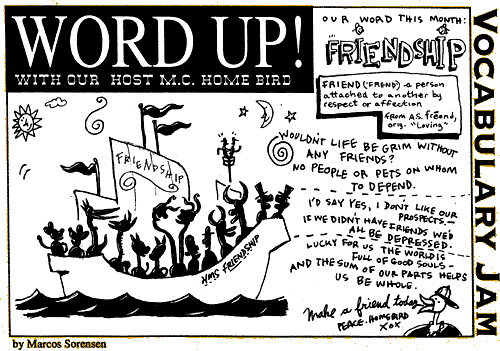 WORD UP!
WITH OUR HOST M.C. HOME BIRD
OUR WORD THIS MONTH:
FRIENDSHIP
FRIEND ('FREND) a person
attached to another by
respect or affection
from A.S. frēond,
org. "Loving"
WOULDN'T LIFE BE GRIM WITHOUT
ANY FRIENDS?
NO PEOPLE OR PETS ON WHOM
TO DEPEND.
I'D SAY YES, I DON'T LIKE OUR
PROSPECTS—
IF WE DIDN'T HAVE FRIENDS WE'D
ALL BE DEPRESSED.
LUCKY FOR US THE WORLD IS
FULL OF GOOD SOULS—
AND THE SUM OF OUR PARTS HELPS
US BE WHOLE.
Make a friend today
PEACE, HOMEBIRD
XOX
FRIENDSHIP
HMS FRIENDSHIP
VOCABULARY JAM
by Marcos Sorensen